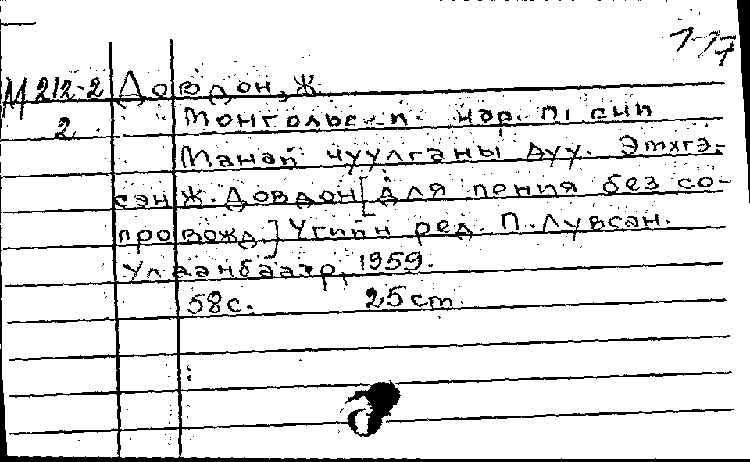 1-17
М 212-2 Довдон, Ж.
2 Монгольск. нар. песни
Манай чуулганы дуу. Эмхгэ-
сэн Ж. Довдон [Для пения без со-
провожд.] Үгийн ред. П. Лувсан.
Улаанбаатр, 1959.
58 с. 25 cm.